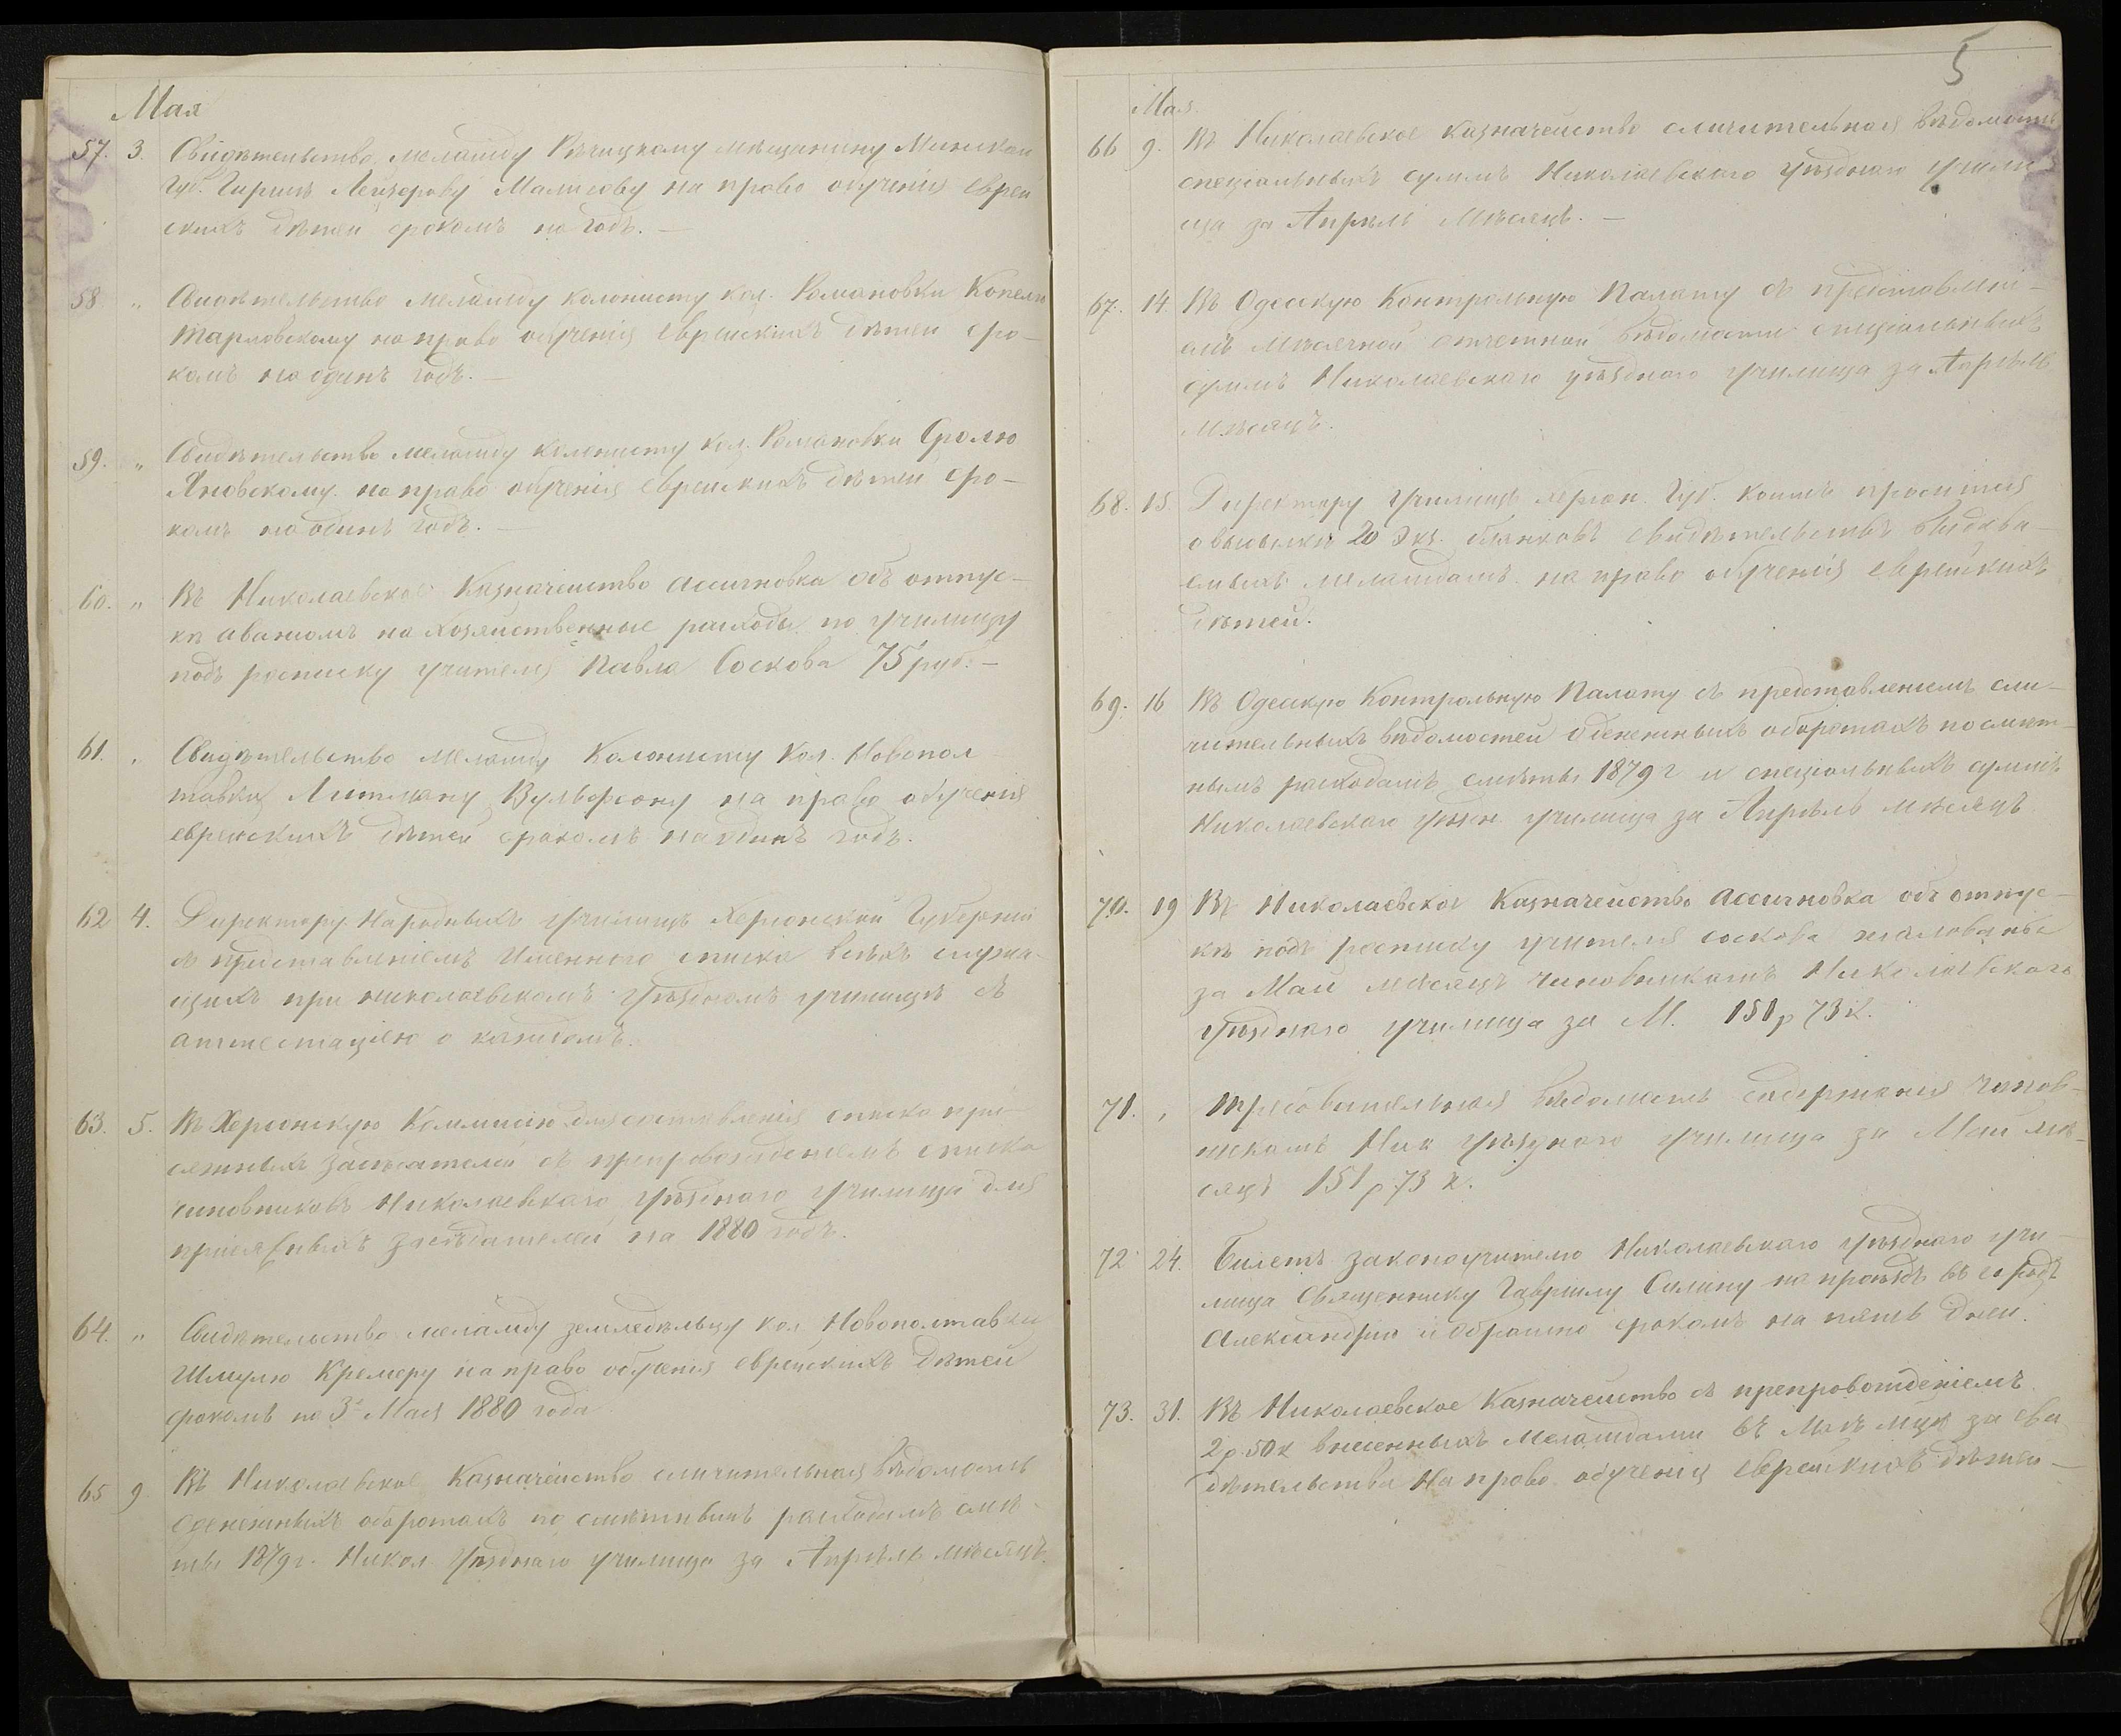 Мая
57. 3. Свидѣтельство меламду Рѣчицкому мѣщанину Минской
Губ. Гиршѣ Лейзерову на право обученія еврей
скихъ дѣтей срокомъ на годъ. —
58 " Свидѣтельство меламду колонисту кол. Романовки Копелю
Тарловскому на право обученія еврейскихъ дѣтей сро-
комъ на одинъ годъ. —
59. " Свидѣтельство меламду колонисту кол. Романовки Сролю
Яновскому на право обученія еврейскихъ дѣтей сро-
комъ на одинъ годъ. —
60. " Въ Николаевское Казначейство ассигновка объ отпус-
кѣ авансомъ на хозяйственные расходы по училищу
подъ росписку учителя Павла Соскова 75 руб. —
61. " Свидѣтельство меламду Колонисту Кол. Новопол
тавки Литману Вульфсону на право обученія
еврейскихъ дѣтей срокомъ на одинъ годъ.
62 4. Директору Народныхъ училищъ Херсонской Губерніи
съ представленіемъ Именного списка всѣхъ служа-
щихъ при николаевскомъ уѣздномъ училищѣ съ
аттестаціею о каждомъ.
63. 5. Въ Херсонскую Коммисію для составленія списка при-
сяжныхъ засѣдателей съ препровожденіемъ списка
чиновниковъ Николаевскаго уѣзднаго училища для
присяжныхъ засѣдателей на 1880 годъ.
64. " Свидѣтельство меламду земледѣльцу кол. Новополтавки
Шмулю Кремеру на право обученія еврейскихъ дѣтей
срокомъ по 3е Мая 1880 года
65 9 Въ Николаевское Казначейство сличительная вѣдомость
о денежныхъ оборотахъ по смѣтнымъ расходамъ смѣ-
ты 1879 г. Никол. Уѣзднаго училища за Апрѣль мѣсяцъ.
5
Мая.
66 9. Въ Николаевское Казначейство сличительная вѣдомость
спеціальныхъ суммъ Николаевскаго уѣзднаго учили
ща за Апрѣль мѣсяцъ. —
67. 14. Въ Одесскую Контрольную Палату съ представлені-
емъ мѣсячной отчетной вѣдомости спеціальныхъ
суммъ Николаевскаго уѣзднаго училища за Апрѣль
мѣсяцъ.
68. 15. Директору училищъ Херсон. Губ. коимъ просится
о высылкѣ 20 Экз. бланковъ свидѣтельствъ выдава-
емыхъ меламдамъ на право обученія еврейскихъ
дѣтей.
69. 16 Въ Одесскую Контрольную Палату съ представленіемъ сли-
чительныхъ вѣдомостей о денежныхъ оборотахъ по смѣт-
нымъ расходамъ смѣты 1879 г и спеціальныхъ суммъ
Николаевскаго уѣздн. училища за Апрѣль мѣсяцъ
70. 19 Въ Николаевское Казначейство Ассигновка объ отпус-
кѣ подъ росписку учителя Соскова жалованье
за Май мѣсяцъ чиновникамъ Николаевскаго
уѣзднаго училища за М. 151 р 73 к.
71. " Требовательная вѣдомость содержанія чинов-
никамъ Ник уѣзднаго училища за Май мѣ-
сяцъ 151 р. 73 к.
72 24. Билетъ законоучителю Николаевскаго уѣзднаго учи-
лища Священнику Гавріилу Силину на проѣздъ въ городъ
Александрію и обратно срокомъ на пять дней.
73. 31. Въ Николаевское Казначейство съ препровожденіемъ
2 р. 50 к внесенныхъ Меламдами въ Маѣ мцѣ за сви
дѣтельства на право обученія еврейскихъ дѣтей —